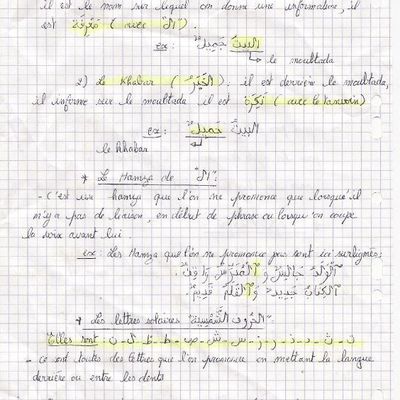 il est le nom sur lequel on donne une information, il
est مَعْرِفَة ( avec "ال" ).
ex : البيتُ جَمِيلٌ
↳ le moubtada
2) Le Khabar ( الخَبَرُ ) : il est derrière le moubtada,
il informe sur le moubtada il est نَكِرَة ( avec le tanwin)
ex : البيتُ جَمِيلٌ
le Khabar
* Le Hamza de "ال"
- C'est un hamza que l'on ne prononce que lorsqu'il
n'y a pas de liaison, en début de phrase ou lorsqu'on coupe
la voix avant lui.
ex : Les Hamza que l'on ne prononce pas sont ici surlignés :
اَلْوَلَدُ جَالِسٌ وَ المُدَرِّسُ وَاقِفٌ.
اَلكِتَابُ جَدِيدٌ وَالْقَلَمُ قَدِيمٌ.
* Les lettres solaires "الحُرُوفُ الشَّمْسِيَّة"
Elles sont : ت - ث - د - ذ - ر - ز - س - ش - ص - ض - ط - ظ - ل - ن
- ce sont toutes des lettres que l'on prononce en mettant la langue
derrière ou entre les dents